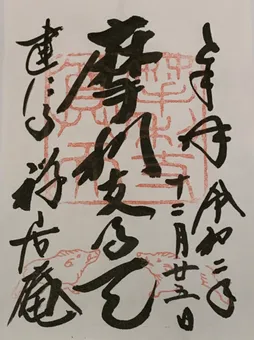 奉拝 令和二年
十二月廿五日
摩利支尊天
建仁寺 禅居庵